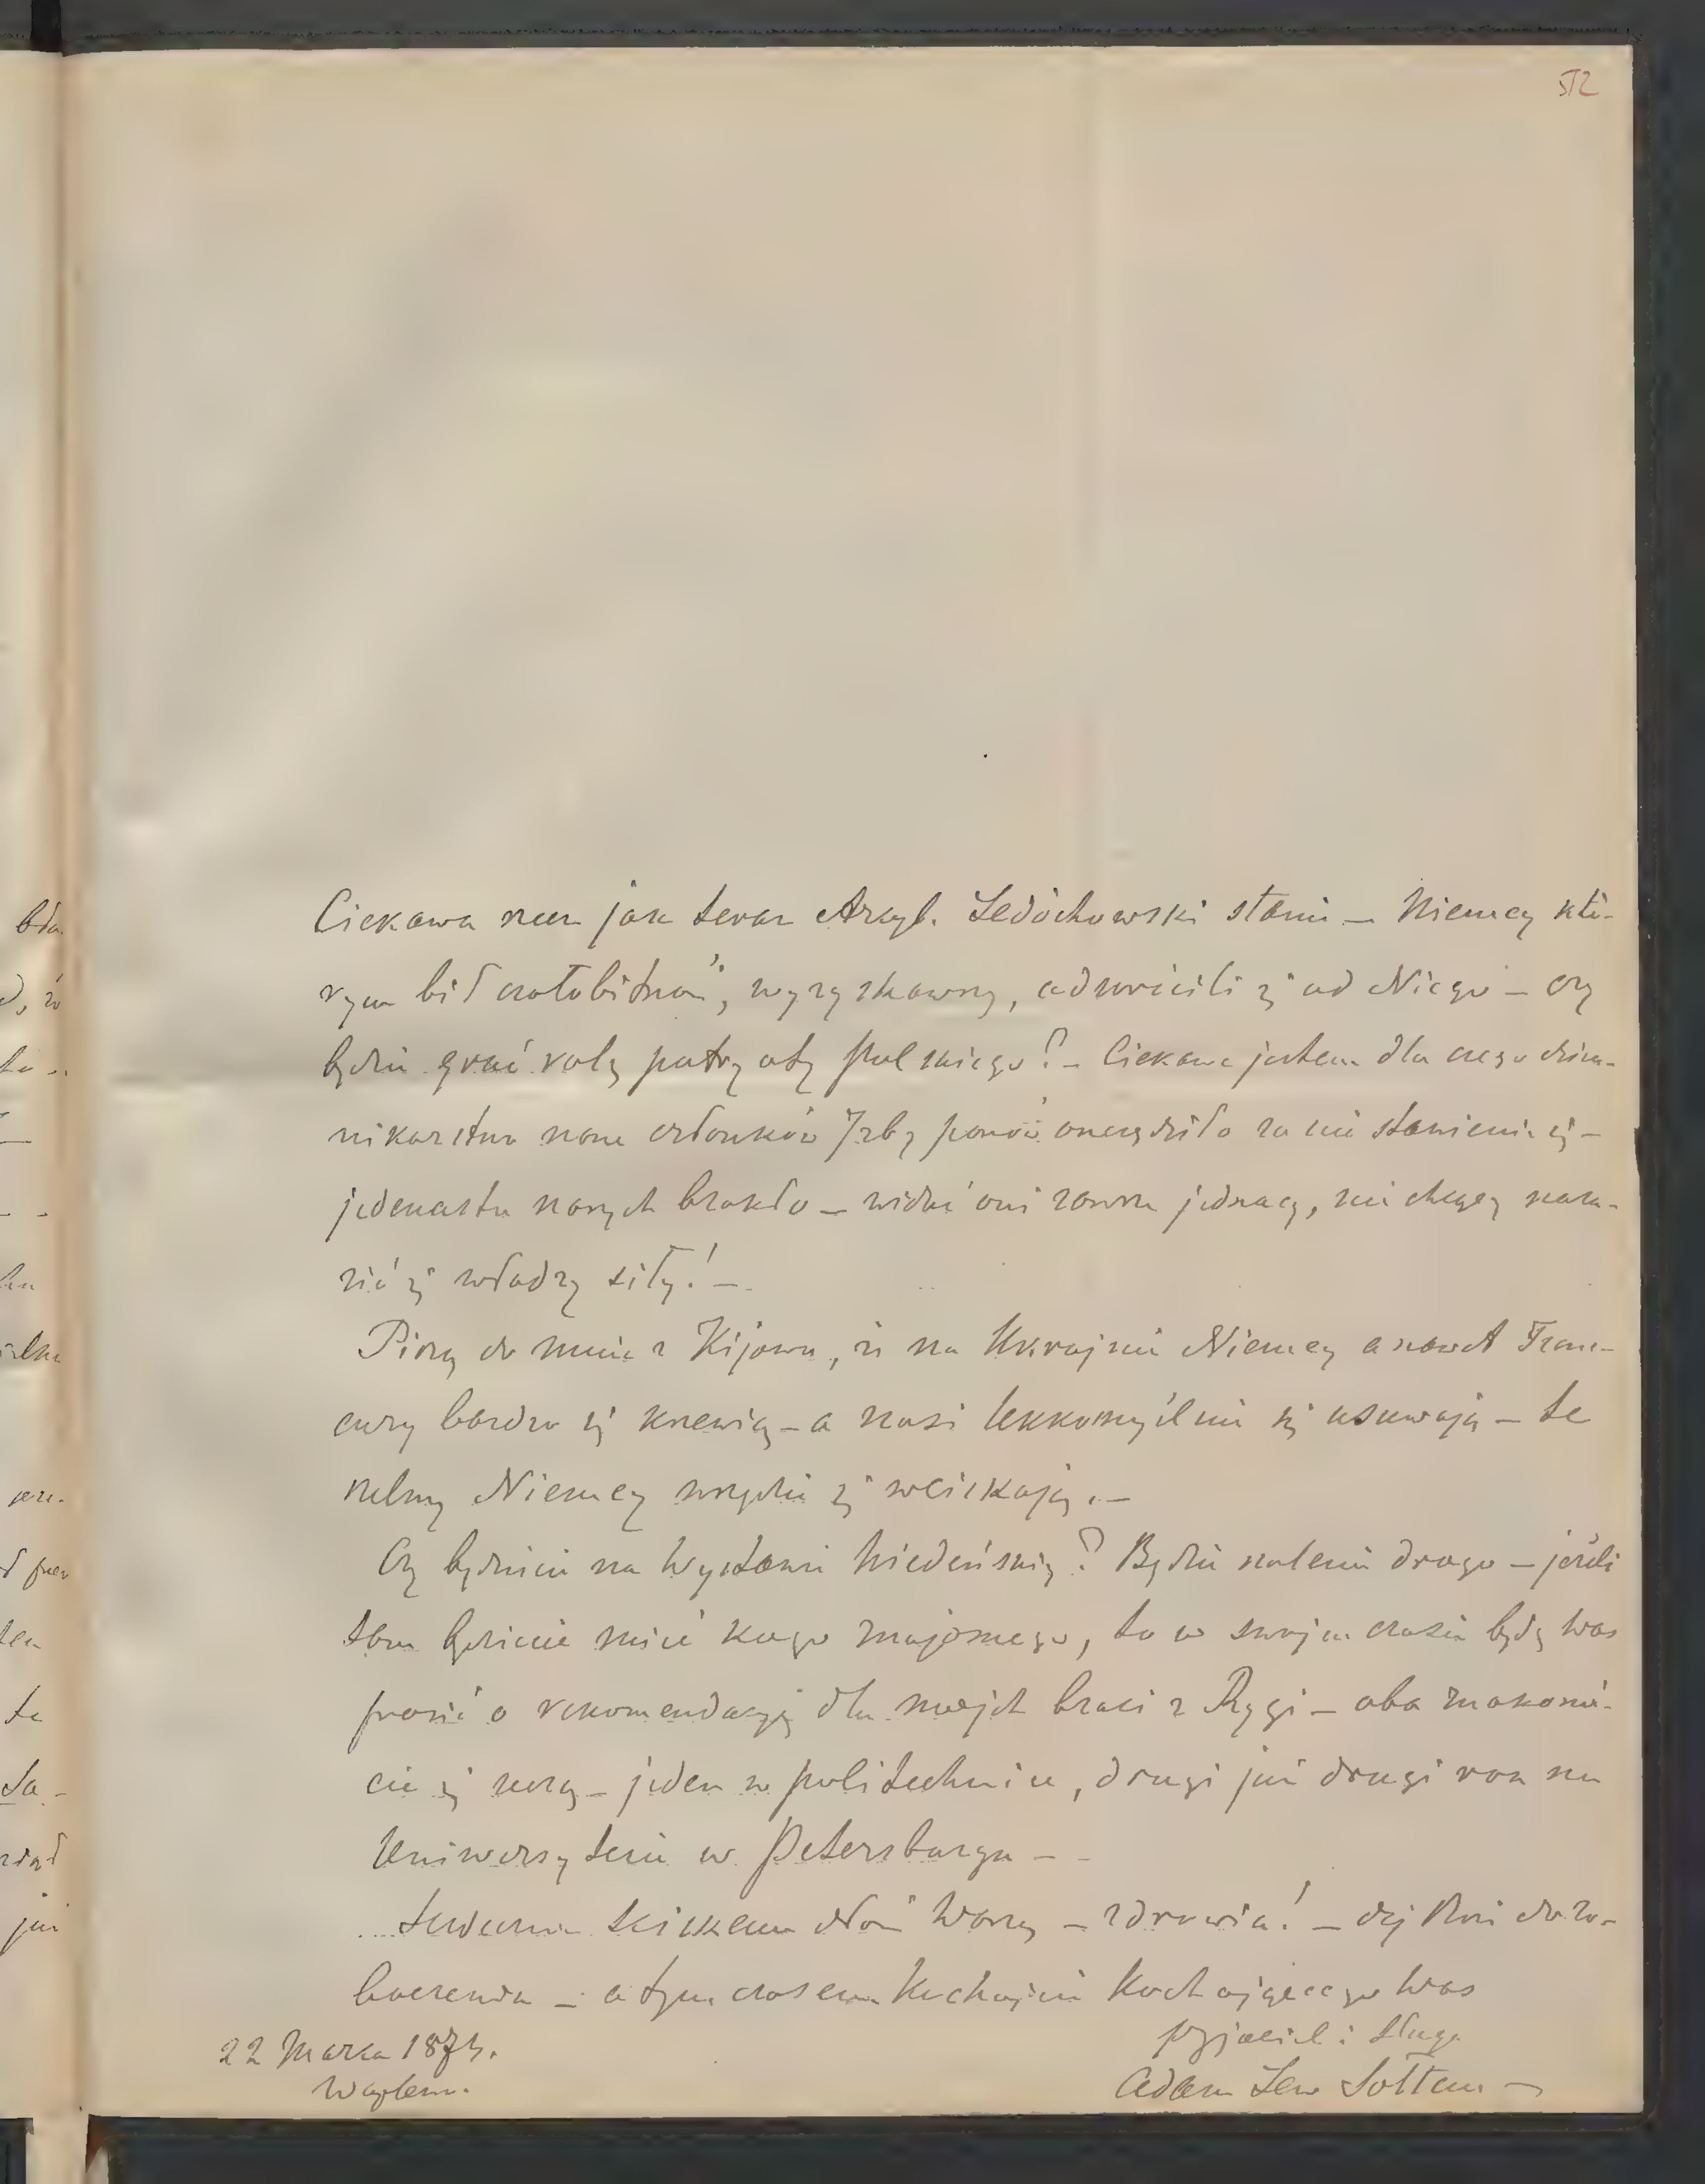 512
Ciekawa rzecz jak teraz Arcyb. Ledóchowski stanie – Niemcy któ-
rym bił czołobitność, wyzyskawszy, odwrócili się od Niego – czy
będzie grać rolę patryoty polskiego? – Ciekawe jestem dla czego dzien-
nikarstwo nasze członków Izby panów oszczędziło za nie stawienie się –
jedenastu naszych brakło – widać oni zawsze jednacy, nie chcący nara-
zić się władzy siły! –
Piszą do mnie z Kijowa, iż na Ukrajnie Niemcy a nawet Fran-
cuzy bardzo się krzewią – a nasi lekkomyślnie się usuwają – te
szelmy Niemcy wszędzie się wciskają. –
Czy będziecie na Wystawie Wiedeńskiej? Będzie szalenie drogo – jeśli
tam będziecie mieć kogo znajomego, to w swoim czasie będę was
prosić o rekomendacyję dla mojch braci z Rygi – oba znakomi-
cie się uczą – jeden w politechnice, drugi już drugi rok na
Uniwersytecie w Petersburgu – –
Serdecznie ściskam dłoń Waszą – zdrowia! – daj Boże do zo-
baczenia – a tym czasem kochajcie kochającego Was
przyjaciel i sługa
Adam Lew Sołtan –
22 Marca 1873.